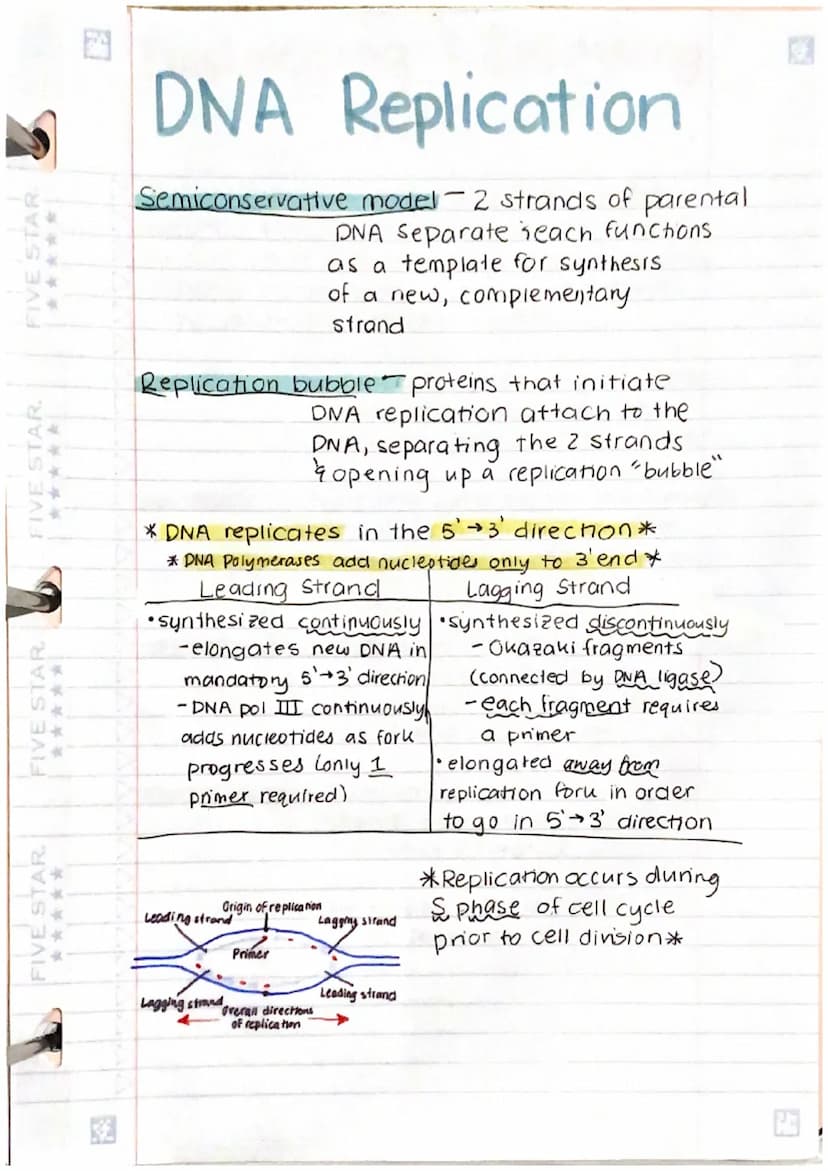 DNA Replication
Semiconservative model - 2 strands of parental
DNA separate ; each functions
as a template for synthesis
of a new, complementary
strand
Replication bubble - proteins that initiate
DNA replication attach to the
DNA, separating the 2 strands
& opening up a replication "bubble"
* DNA replicates in the 5'→3' direction *
* DNA Polymerases add nucleotides only to 3' end *
Leading Strand
• synthesized continuously
- elongates new DNA in
mandatory 5'→3' direction
- DNA pol III continuously
adds nucleotides as fork
progresses (only 1
primer required)
Lagging Strand
• synthesized discontinuously
- Okazaki fragments
(connected by DNA ligase)
- each fragment requires
a primer
• elongated away from
replication fork in order
to go in 5'→3' direction
* Replication occurs during
S phase of cell cycle
prior to cell division *
Origin of replication
Leading strand
Lagging strand
Primer
Lagging strand
Leading strand
Overall directions
of replication
FIVE STAR.
FIVE STAR.
FIVE STAR.
FIVE STAR.